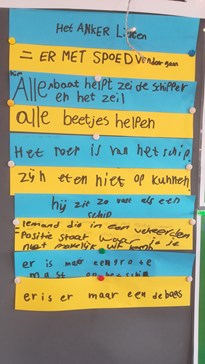 Het ANKER Lichten
= ER MET SPOED vandoor gaan
Alle baat helpt zei de schipper
en het zeil
alle beetjes helpen
Het roer is van het schip
zijn eten niet op kunnen
hij zie zo vast als een
schip
= iemand die in een verkeerden
Positie staat waar je
niet makkelijk uit komt
er is maar een grote
mast op het schip
er is er maar een de baas